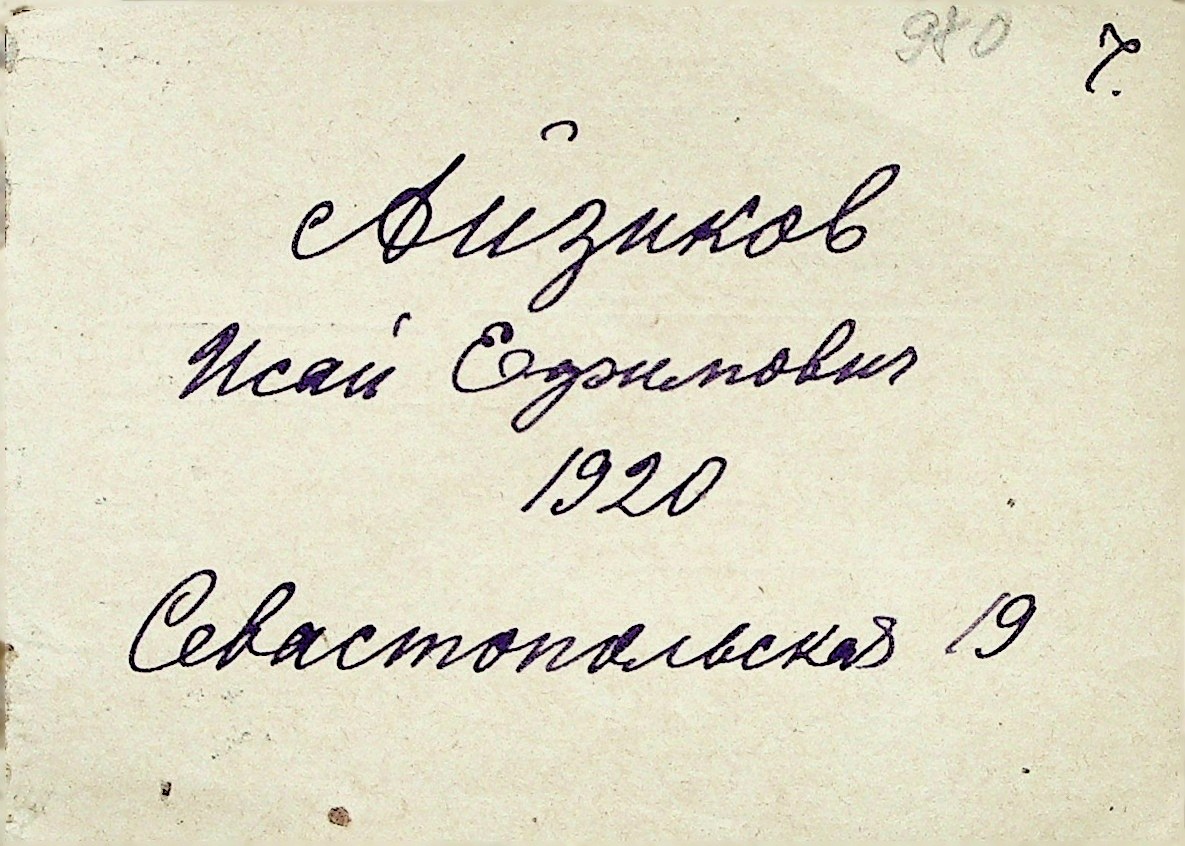 980 7.
Айзиков
Исай Ефимович
1920
Севастопольская 19